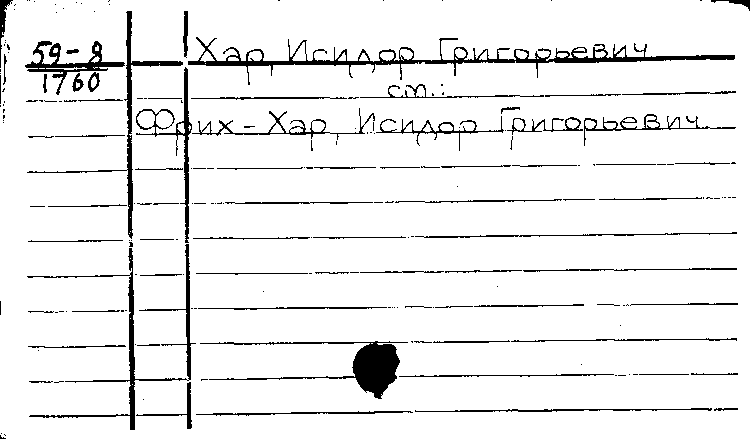 59-8
1760
Хар, Исидор Григорьевич
см.:
Фрих-Хар, Исидор Григорьевич.